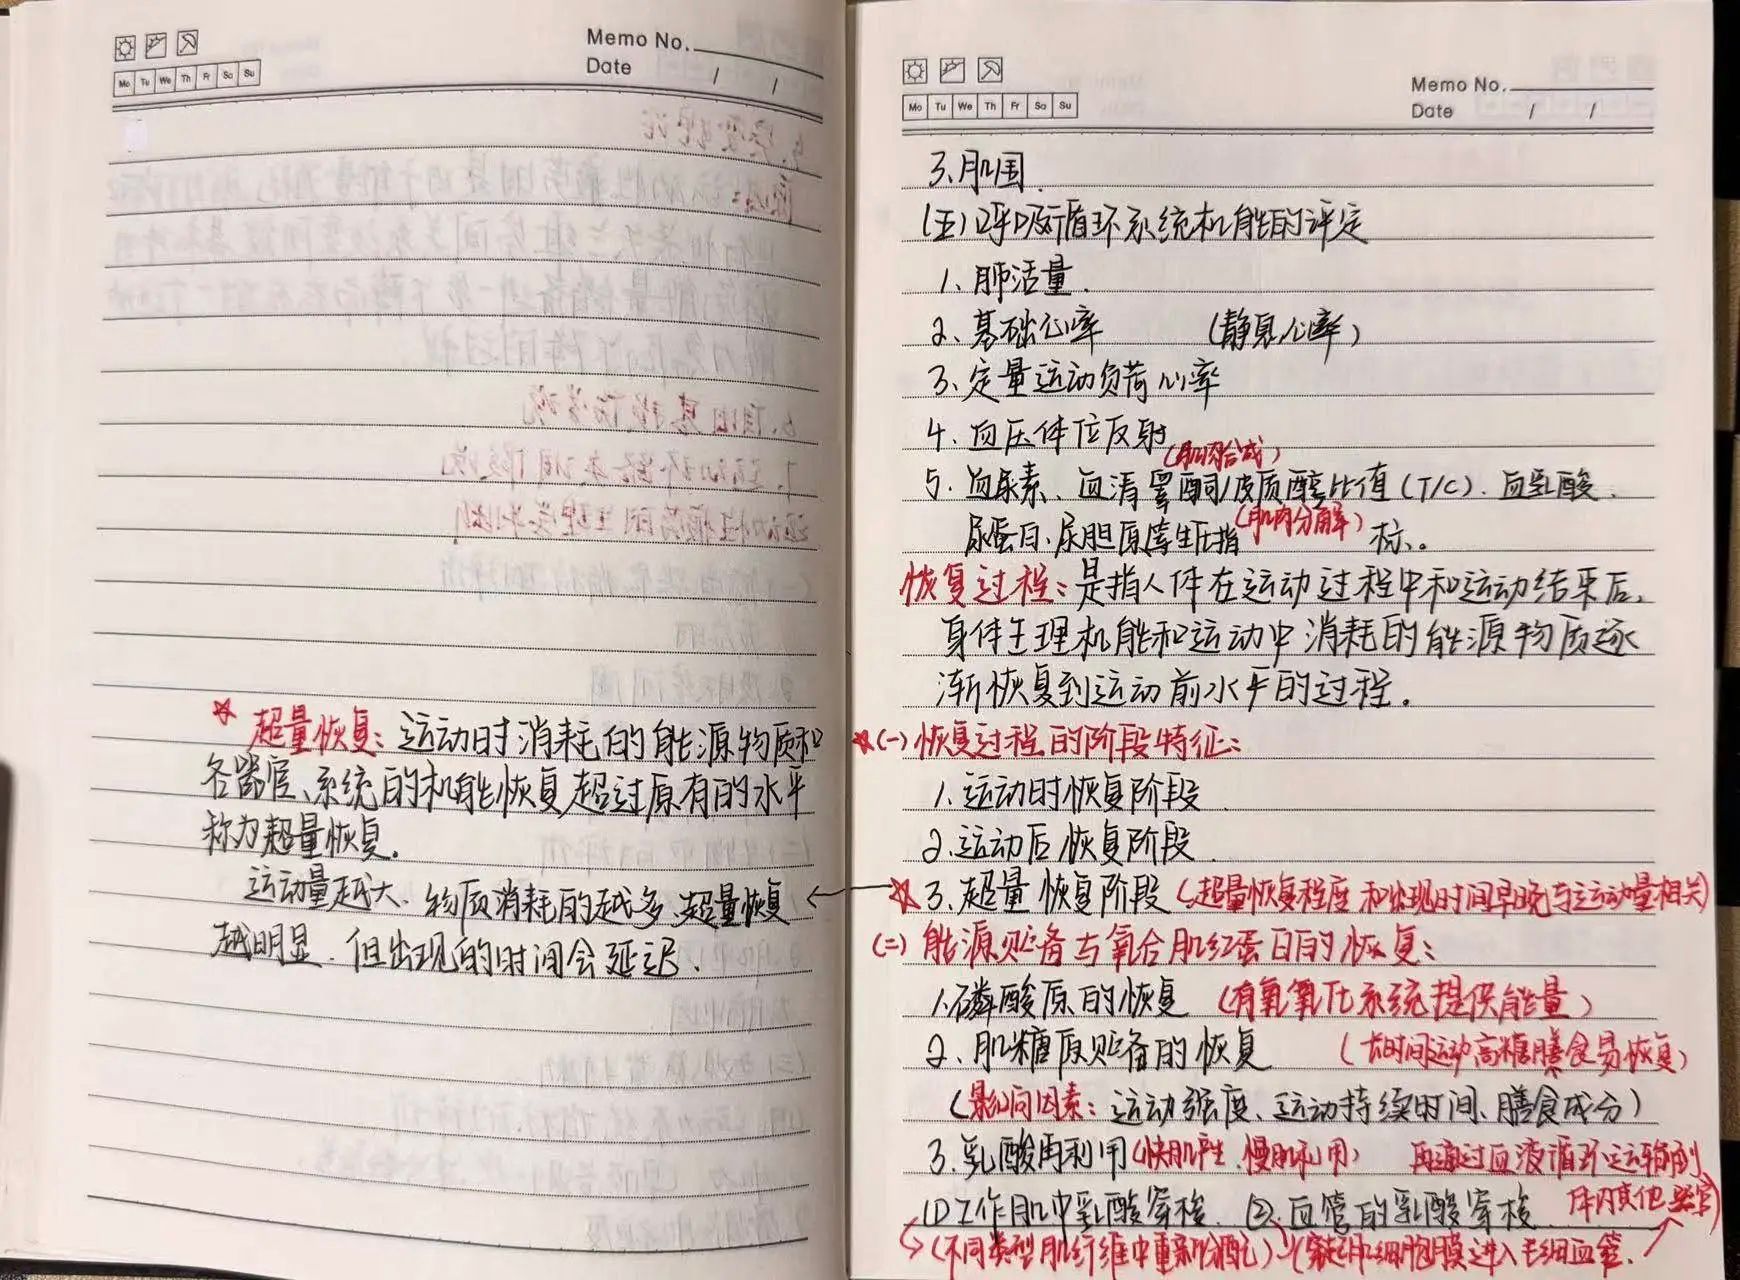 Memo No.
Date / /
Mo Tu We Th Fr Sa Su
☆ 超量恢复：运动时消耗的能源物质和
各器官、系统的机能恢复超过原有的水平
称为超量恢复。
运动量越大、物质消耗的越多、超量恢复
越明显，但出现的时间会延迟.
Memo No.
Date / /
Mo Tu We Th Fr Sa Su
3、肌围.
(五)呼吸循环系统机能的评定
1、肺活量.
2、基础心率 (静息心率)
3、定量运动负荷心率
4、血压体位反射
(肌肉合成)
5、血尿素、血清睾酮/皮质醇比值(T/C)、血乳酸、
尿蛋白、尿胆原等生理指(肌肉分解)标。
恢复过程：是指人体在运动过程中和运动结束后,
身体生理机能和运动中消耗的能源物质逐
渐恢复到运动前水平的过程.
☆(一)恢复过程的阶段特征：
1、运动时恢复阶段
2、运动后恢复阶段
☆3、超量恢复阶段(超量恢复程度和出现时间早晚与运动量相关)
(二)能源贮备与氧合肌红蛋白的恢复：
1、磷酸原的恢复 (有氧氧化系统提供能量)
2、肌糖原贮备的恢复 (长时间运动高糖膳食易恢复)
(影响因素：运动强度、运动持续时间、膳食成分)
3、乳酸再利用(快肌产生、慢肌利用) 再通过血液循环运输到
(1)工作肌中乳酸穿梭、(2)血管的乳酸穿梭. 体内其他器官)
(不同类型肌纤维中重新分配) (穿过肌细胞膜进入毛细血管.